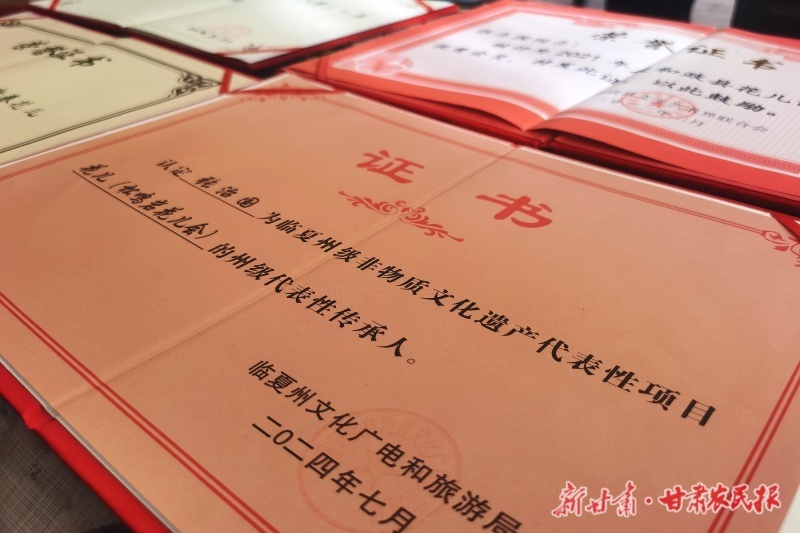 荣誉证书
荣誉证书
和政县花儿
以此鼓励。
联合会
月
证书
认定 张治国 为临夏州级非物质文化遗产代表性项目
花儿（松鸣岩花儿会） 的州级代表性传承人。
临夏州文化广电和旅游局
二〇二四年七月
新甘肃·甘肃农民报